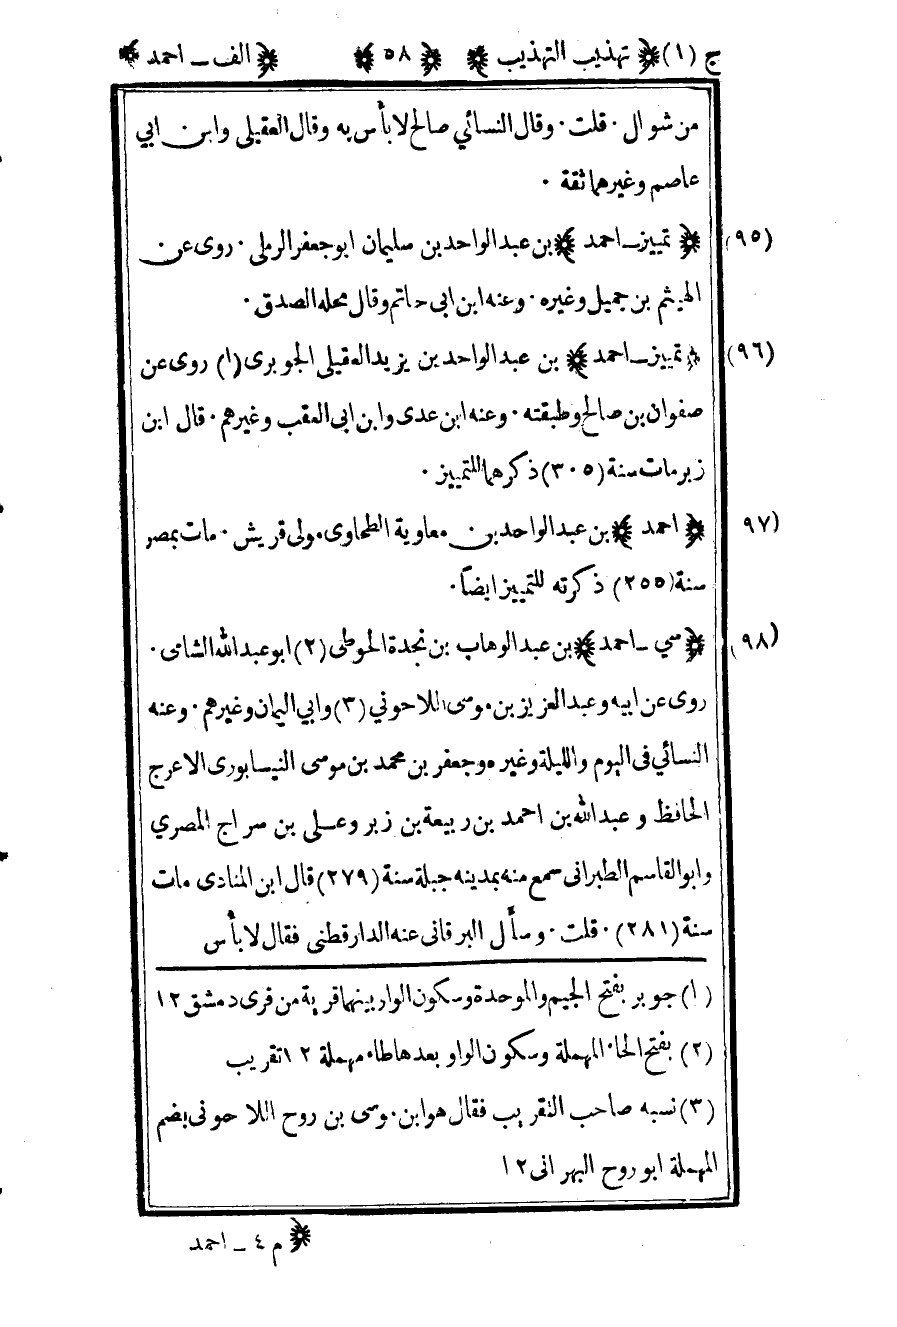 ج (١) ﴿ تهذيب التهذيب ﴾ ﴿ ٥٨ ﴾ ﴿ الف ـ احمد ﴾
من شوال · قلت · وقال النسائي صالح لا بأس به وقال العقيلي وابن ابي
عاصم وغيرهما ثقة ·
(٩٥) ﴿ تمييز ـ احمد ﴾ بن عبد الواحد بن سليمان ابو جعفر الرملى · روى عن
الهيثم بن جميل وغيره · وعنه ابن ابى حاتم وقال محله الصدق ·
(٩٦) ﴿ تمييز ـ احمد ﴾ بن عبد الواحد بن يزيد العقيلى الجوبرى (١) روى عن
صفوان بن صالح وطبقته · وعنه ابن عدى وابن ابى العقب وغيرهم · قال ابن
زبر مات سنة (٣٠٥) ذكرهما للتمييز ·
(٩٧ ﴿ احمد ﴾ بن عبد الواحد بن معاوية الطحاوى مولى قريش · مات بمصر
سنة (٢٥٥) ذكرته للتمييز ايضاً ·
(٩٨) ﴿ سي ـ احمد ﴾ بن عبد الوهاب بن نجدة الحوطى (٢) ابو عبد الله الشامى ·
روى عن ابيه وعبد العزيز بن موسى اللاحوني (٣) وابي اليمان وغيرهم · وعنه
النسائي فى اليوم والليلة وغيره وجعفر بن محمد بن موسى النيسابورى الاعرج
الحافظ و عبد الله بن احمد بن ربيعة بن زبر وعلى بن سراج المصري
وابو القاسم الطبرانى سمع منه بمدينه جبلة سنة (٢٧٩) قال ابن المنادى مات
سنة (٢٨١) · قلت · وسأل البرقانى عنه الدار قطنى فقال لا بأس
(١) جوبر بفتح الجيم والموحدة وسكون الواو بينهما قرية من قرى دمشق ١٢
(٢) بفتح الحاء المهملة وسكون الواو بعدها طاء مهملة ١٢ تقريب
(٣) نسبه صاحب التقريب فقال هو ابن موسى بن روح اللاحونى بضم
المهملة ابو روح البهرانى ١٢
﴿ م ٤ ـ احمد